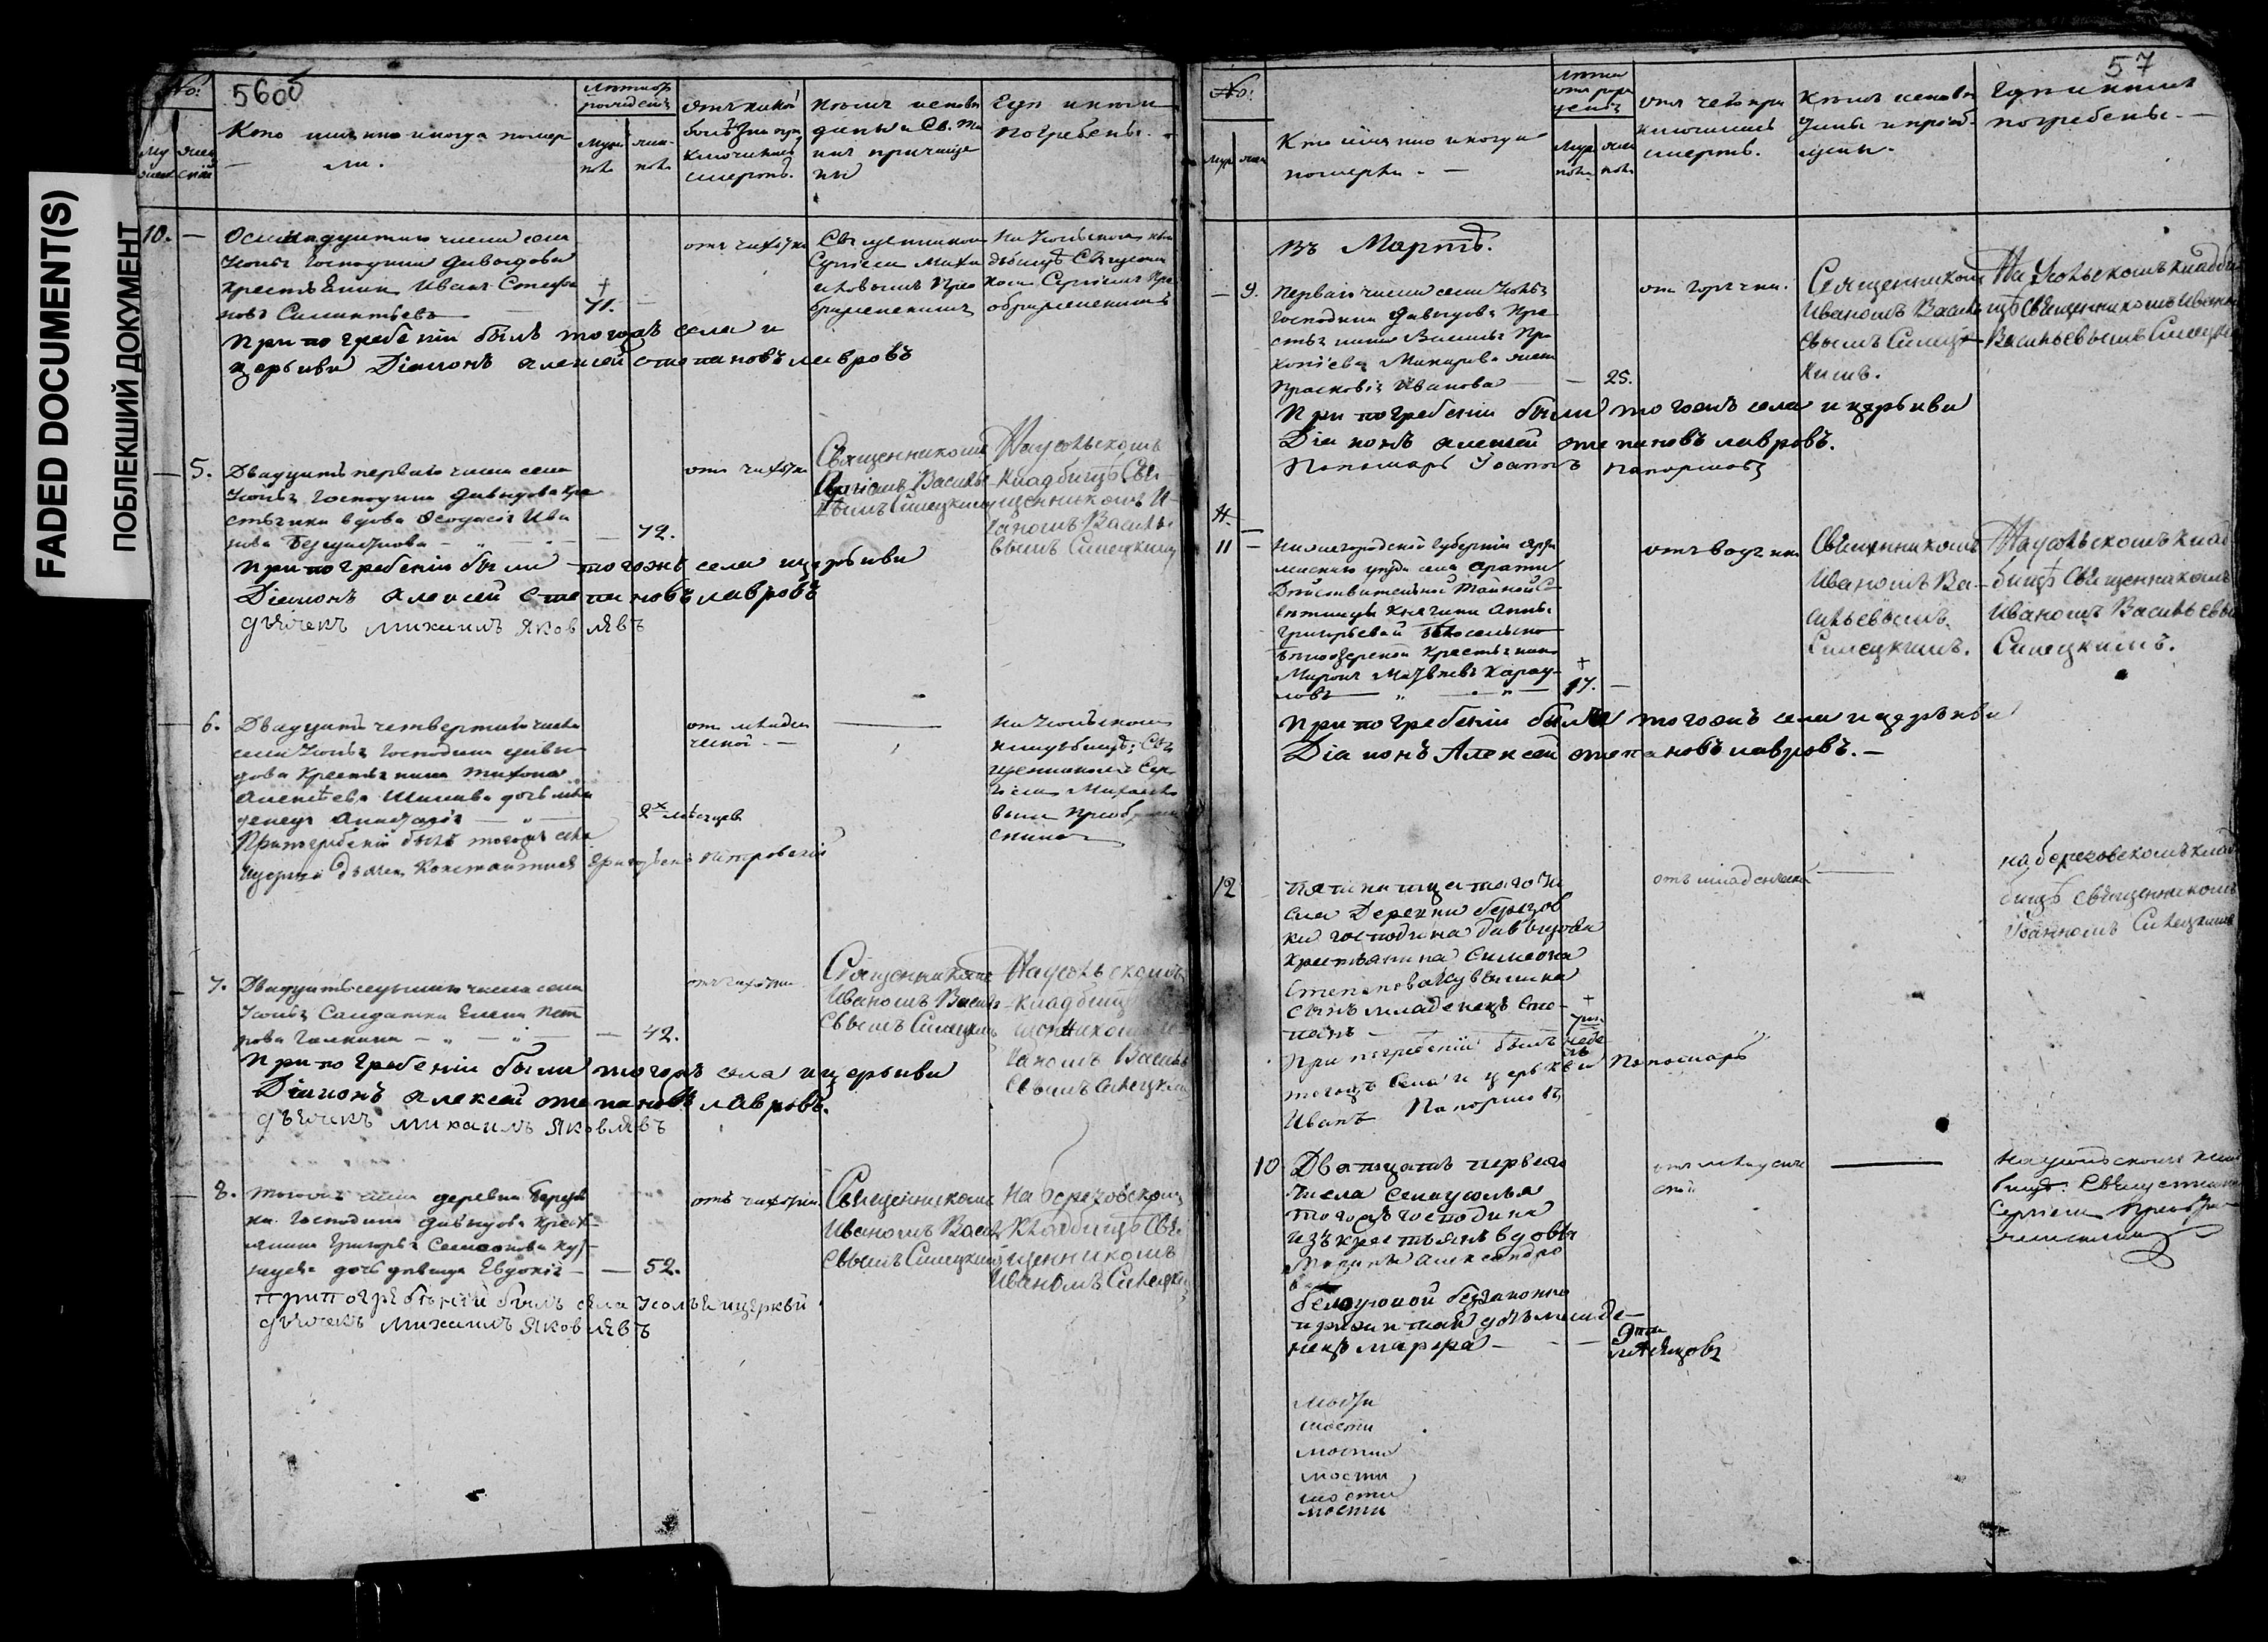 FADED DOCUMENT(S)
ПОБЛЕКШИЙ ДОКУМЕНТ
No:
560б
Кто именно и когда помер
ли.
Мужеска
женска
Кѣмъ исповѣ
даны и Св. Та
инъ причаще
ны
Гдѣ и кѣмъ
погребены.
10. —
Осмнадцатаго числа села
Усолья Господина Давыдова
крестьянинъ Иванъ Степа
новъ
71.
отъ чахотки
Священникомъ
Сергіемъ Миха
На Усольскомъ кла
дбищѣ Священни
комъ Сергіемъ Пре
ображенскимъ
При погребеніи былъ тогожъ села и
церькви Діаконъ Алексей степановъ лавровъ
— 5.
Двадцать перваго числа села
Усолья Господина Давыдова кре
стьянка вдова Ѳеодосія Ива
нова
— 72.
отъ чахотки
Священникомъ
Василье
вымъ Силецкимъ
На усольскомъ
кладбищѣ Свя
щенникомъ И
ваномъ Василье
вымъ Силецкимъ
При погребеніи были тогожъ села и церькви
Діаконъ Алексей степановъ лавровъ
дьячекъ михаилъ яковлявъ
— 6.
Двадцать четвертаго числа
села Усолья Господина Давы
дова Крестьянина Тихона
Алексѣева дочь мла
денецъ Анастасія — „ —
2х мѣсяцев
от младен
ческой. —
На Усольскомъ
кладбищѣ; Свя
щенникомъ Сер
гіемъ Михайло
вымъ Преображен
скимъ
При погребеніи былъ тогожъ села
и церкви дьячек Константинъ петровскій
— 7.
Двадцать седьмаго числа села
Усолья Солдатка Елена Пет
рова Галкина — „ — „ —
— 42.
отъ чахотки
Священникомъ
Иваномъ Василь
евымъ Силецкимъ
На усольскомъ
кладбищѣ
щенникомъ И
ваномъ Василь
евымъ Силецким
При погребеніи были тогожъ села и церькви
Діаконъ Алексей степановъ лавровъ.
дьячекъ михаилъ яковлявъ
— 8.
тогожъ числа деревни Березов
ки Господина Давыдова крест
янина Григорья Семенова Куз
нецова дочь девица Евдокія —
— 52.
отъ чахотки
Священникомъ
Иваномъ Василь
евымъ Силецкимъ
На березовскомъ
кладбищѣ Свя
щенникомъ
Иваномъ Силецким
при погребении былъ села Усолья и церкви
дьячекъ михаилъ яковлявъ
57
No:
Кто имянно и когда
померъ. —
отъ чего при
ключилась
смерть.
Кѣмъ исповѣ
даны и приоб
щены.
Гдѣ и кѣмъ
погребены. —
Въ Мартѣ.
— 9.
Перваго числа села Усолья
Господина Давыдова Кре
стьянина Василья Про
копіева Макарова жена
Прасковія Иванова
— 25.
от горячки.
Священникомъ
Иваномъ Василь
евымъ Силец
кимъ.
На Усольскомъ кладби
щѣ Священникомъ Иваномъ
Васильевымъ Силецким
При погребеніи были тогожъ села и церькви
Діаконъ Алексей степановъ лавровъ.
Пономарь Іоаннъ Папорновъ
11 —
Нижегородской Губерніи Арза
маскаго уезда села
Дѣйствительной Тайной Со
вѣтницы Княгини Анны
Григорьевой Бѣлосельско
бѣлозерской Крестьянинъ
Миронъ Матвѣевъ Карау
ловъ — „ — „ —
17. —
отъ водянки
Священникомъ
Иваномъ Ва-
сильевымъ
Силецкимъ.
На усольскомъ клад
бищѣ Священникомъ
Иваномъ Васильевым
Силецкимъ.
При погребеніи были тогожъ села и церькви
Діаконъ Алексей степановъ лавровъ. —
12
сла Деревни березов
ки господина давыдова
крестьянина Симеона
Степанова Кувшинка
сынъ младенецъ Сте-
панъ —
неде
ль
отъ младенческой
на березовскомъ клад
бищѣ Священникомъ
Іоанномъ Силецкимъ
При погребеніи былъ
тогожъ села и церькви Пономарь
Иванъ Папорновъ
10
Двадцать первого
числа села усолья
тогожъ господина
изъ крестьянъ вдовы
Марины александро
вой
белоусовой беззаконно
прижитая дочь младе
нецъ марфа —
9ти
мѣсяцовъ
отъ младенче
ской
На усольскомъ клад
бищѣ. Священником
Сергіемъ Преобра
женскимъ
мости
мости
мости
мости
мости